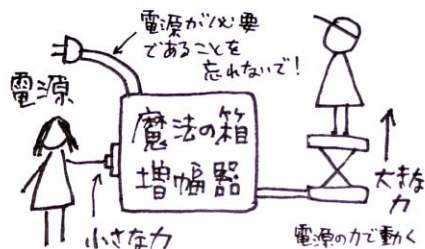 電源が必要
であることを
忘れないで!
電源
魔法の箱
増幅器
小さな力
大きな
力
電源の力で動く